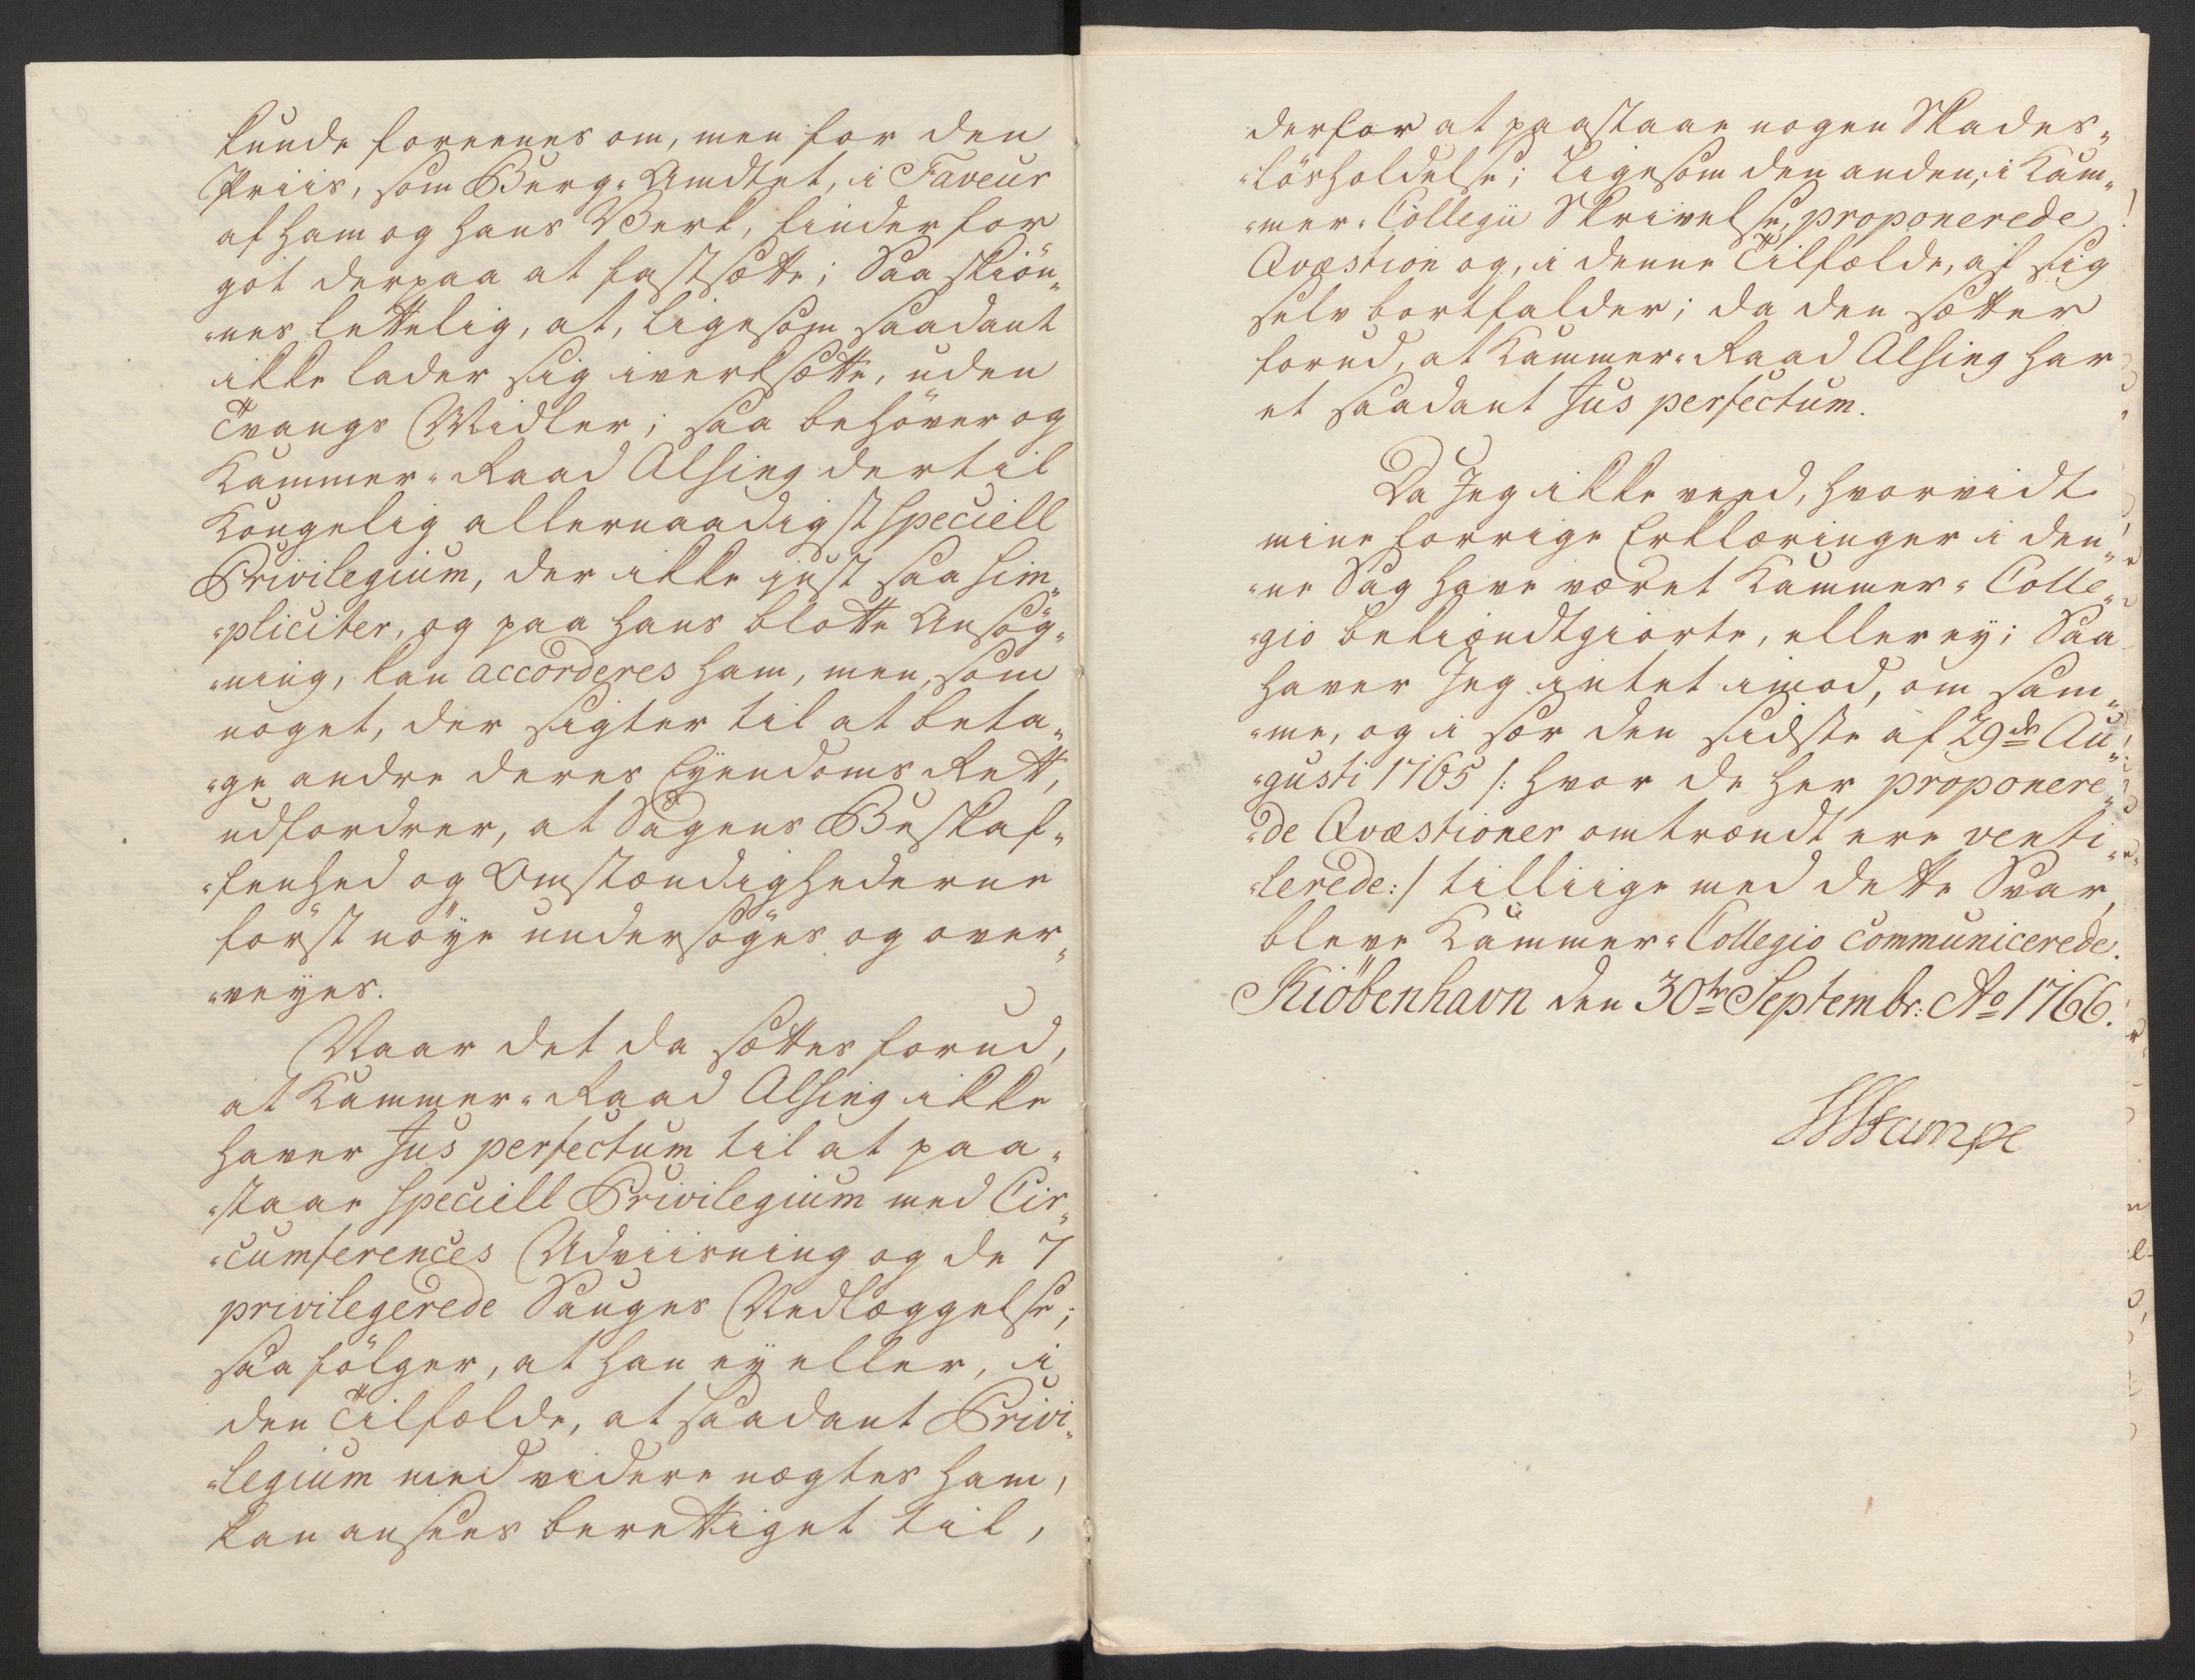 kunde foreenes om, men for den
Priis, som Berg-Amdtet, i Faveur
af ham og hans Verk, finder for
got derpaa at fastsætte; Saa skiön„
„nes lettelig, at, ligesom saadant
ikke lader sig iverksætte, uden
Tvangs Midler; saa behöver og
Kammer-Raad Alsing dertil
Kongelig allernaadigst speciell
Privilegium, der ikke just saa sim„
„pliciter, og paa hans blotte Ansög„
„ning, kan accorderes ham, men, som
noget, der sigter til at beta„
„ge andre deres Eyendoms Rett,
udfordrer, at Sagens Beskaf„
„fenhed og Omstændighederne
först nöye undersöges og over„
„veyes.
Naar det da sættes forud,
at Kammer-Raad Alsing ikke
haver Jus perfectum til at paa„
„staae speciell Privilegium med Cir„
„cumferences Udviisning og de 7
privilegerede Sauges Nedlæggelse;
saa fölger, at han ey eller, i
den Tilfælde, at saadant Privi„
„legium med videre nægtes ham,
kan ansees berettiget til,
derfor at paastaae nogen Skades„
„lösholdelse; ligesom den anden, i Kam„
„mer-Collegii Skrivelse, proponerede
Qvæstion og, i denne Tilfælde, af sig
selv bortfalder; da den sætter
forud, at Kammer-Raad Alsing har
et saadant Jus perfectum.
Da Jeg ikke veed, hvorvidt
mine forrige Erklæringer i den„
„ne Sag have været Kammer-Colle„
„gio bekiændtgiorte, eller ey; Saa
haver Jeg intet imod, om sam„
„me, og i sær den sidste af 29de Au„
„gusti 1765 /: hvor de her proponere„
„de Qvæstioner omtrændt ere venti„
„lerede :/ tilliige med dette Svar,
bleve Kammer-Collegio communicerede.
Kiöbenhavn den 30te Septembr: Ao 1766.
HStampe